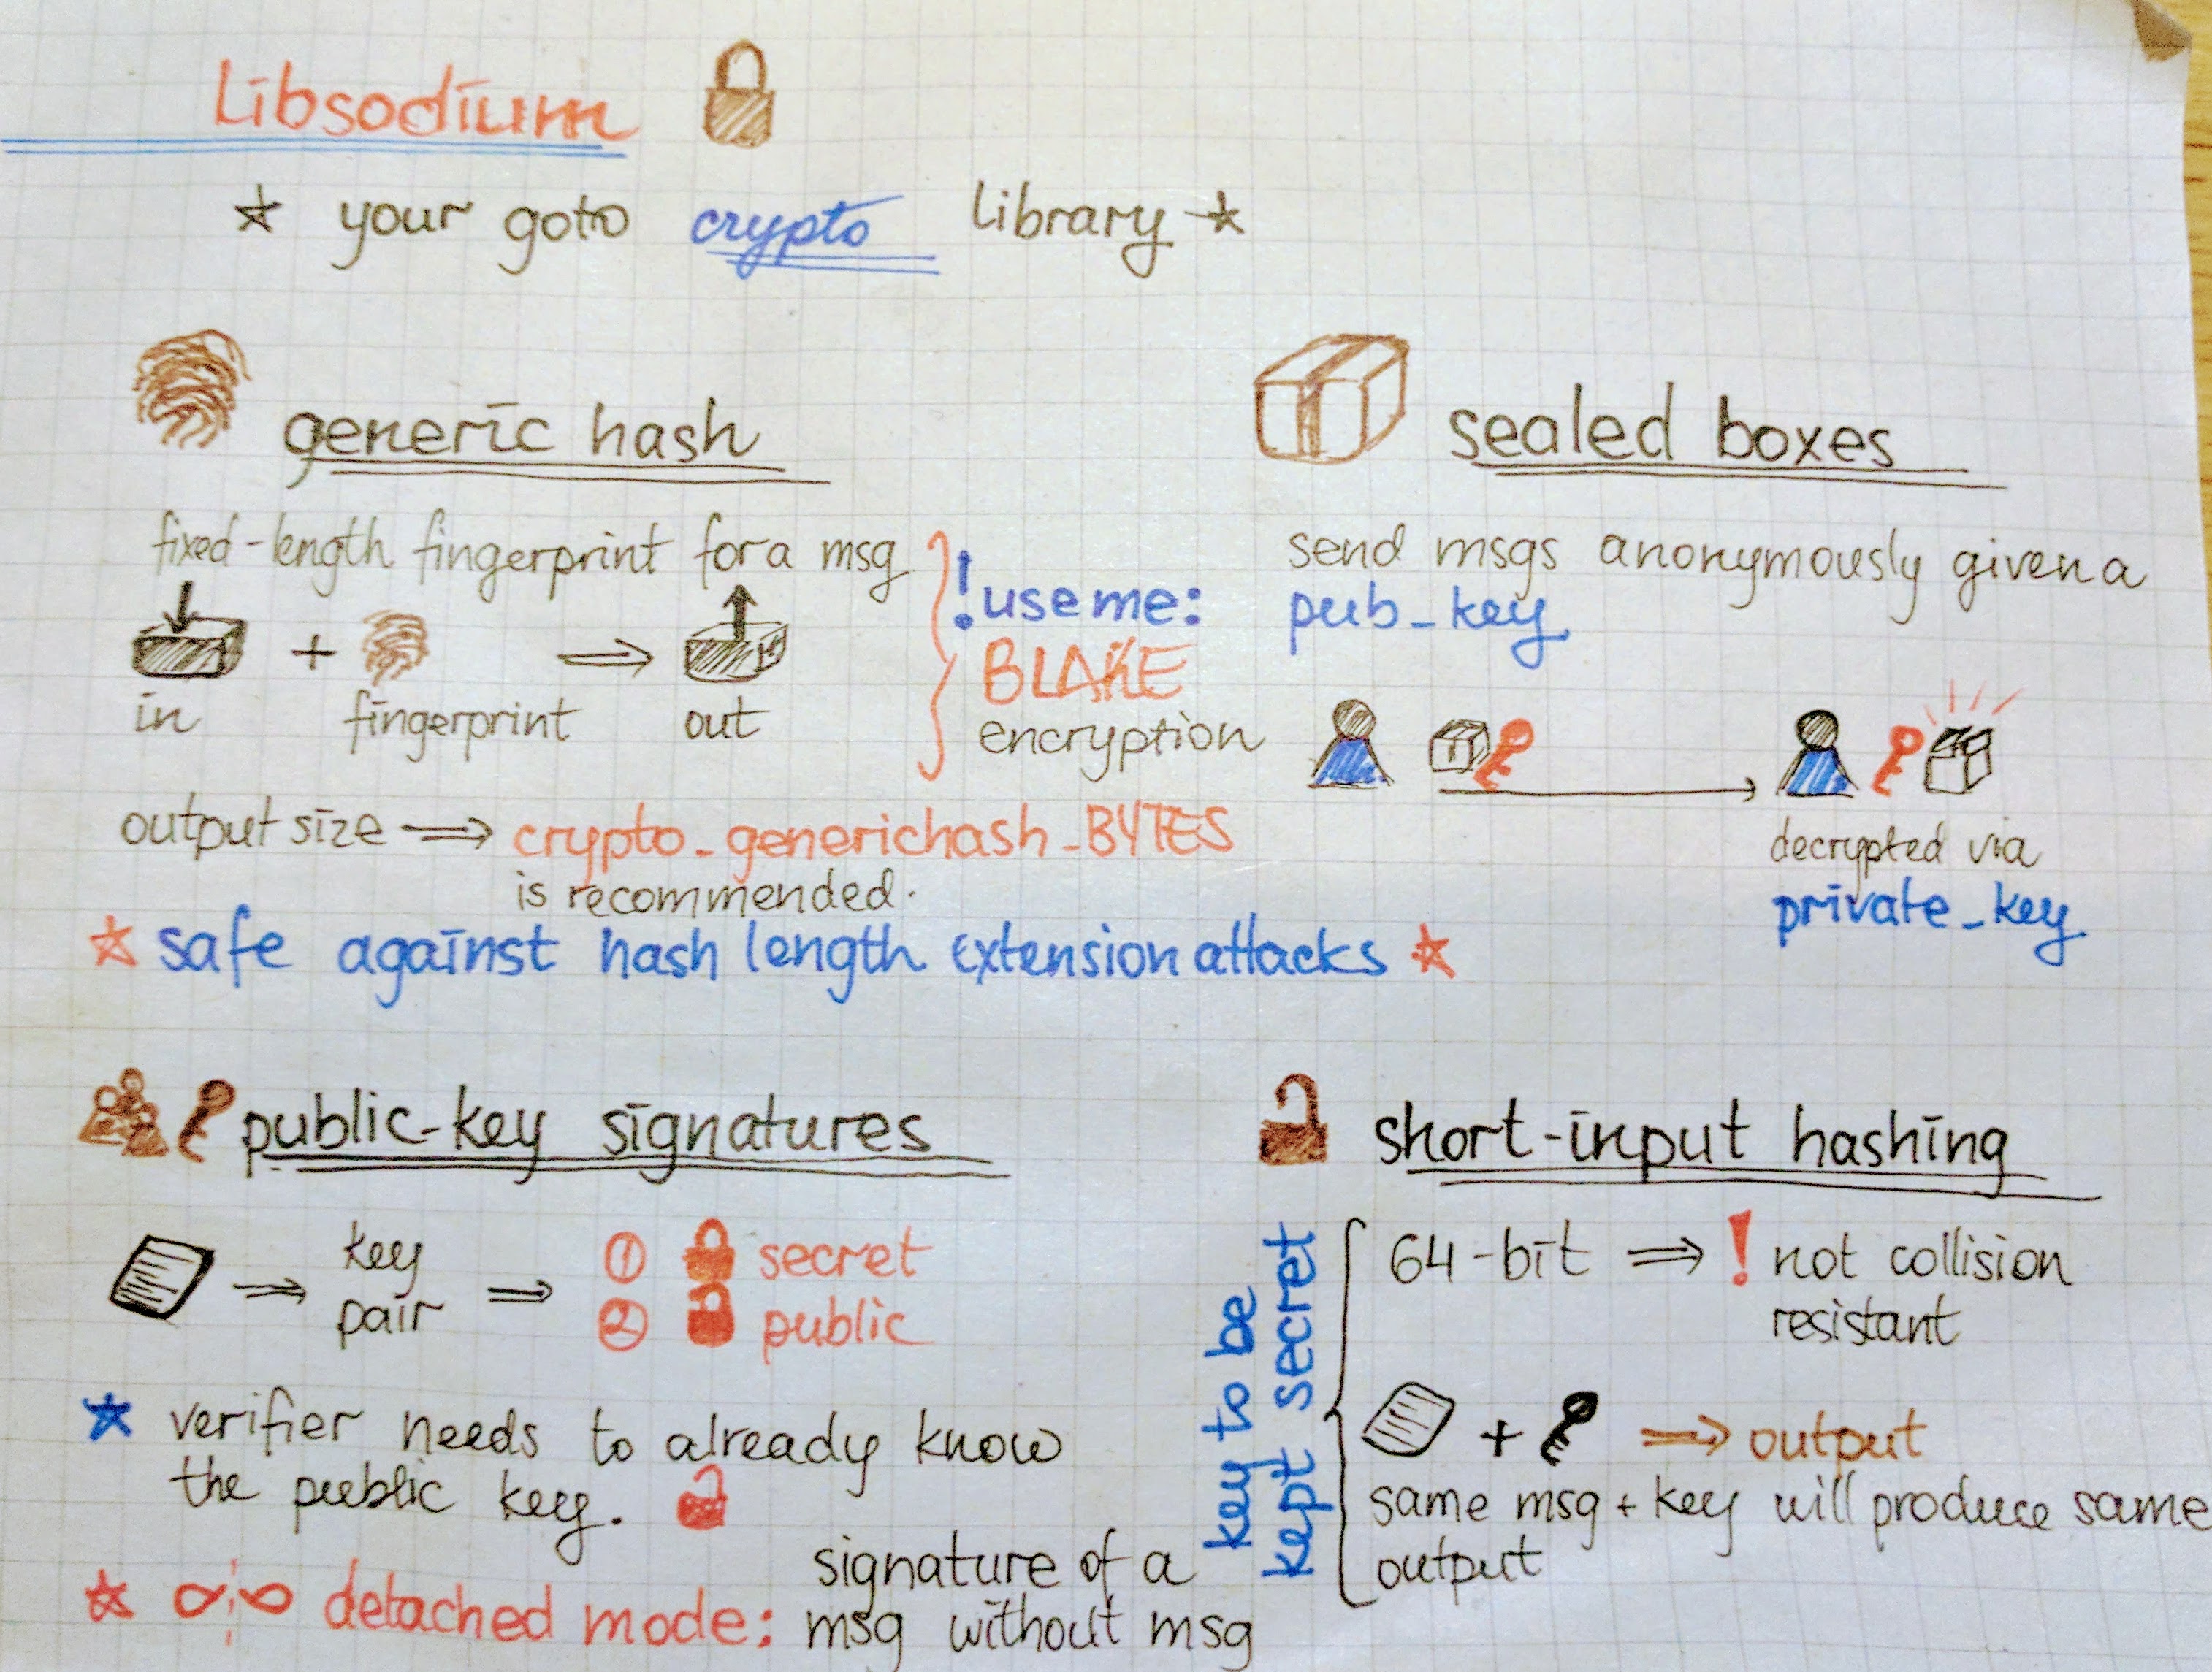 Libsodium
☆ your goto crypto library ☆
generic hash
fixed-length fingerprint for a msg
+ ⇒
in fingerprint out
! use me:
BLAKE
encryption
output size ⇒ crypto_generichash_BYTES
is recommended.
☆ safe against hash length extension attacks ☆
sealed boxes
send msgs anonymously given a
pub_key
decrypted via
private_key
public-key signatures
⇒ key pair ⇒
① secret
② public
☆ verifier needs to already know
the public key.
☆ detached mode: signature of a
msg without msg
short-input hashing
key to be
kept secret
64-bit ⇒ ! not collision
resistant
+ ⇒ output
same msg + key will produce same
output